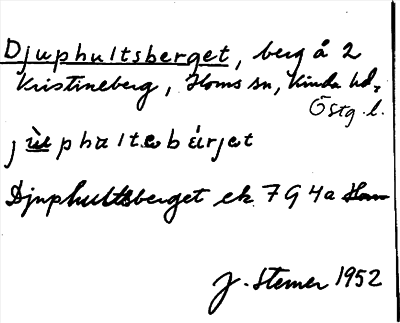 Djuphultsberget, berg å 2
Kristineberg, Horns sn, Kinda hd,
Östg. l.
Djuphultsberget ek. 7 G 4a Horn
J. Sterner 1952